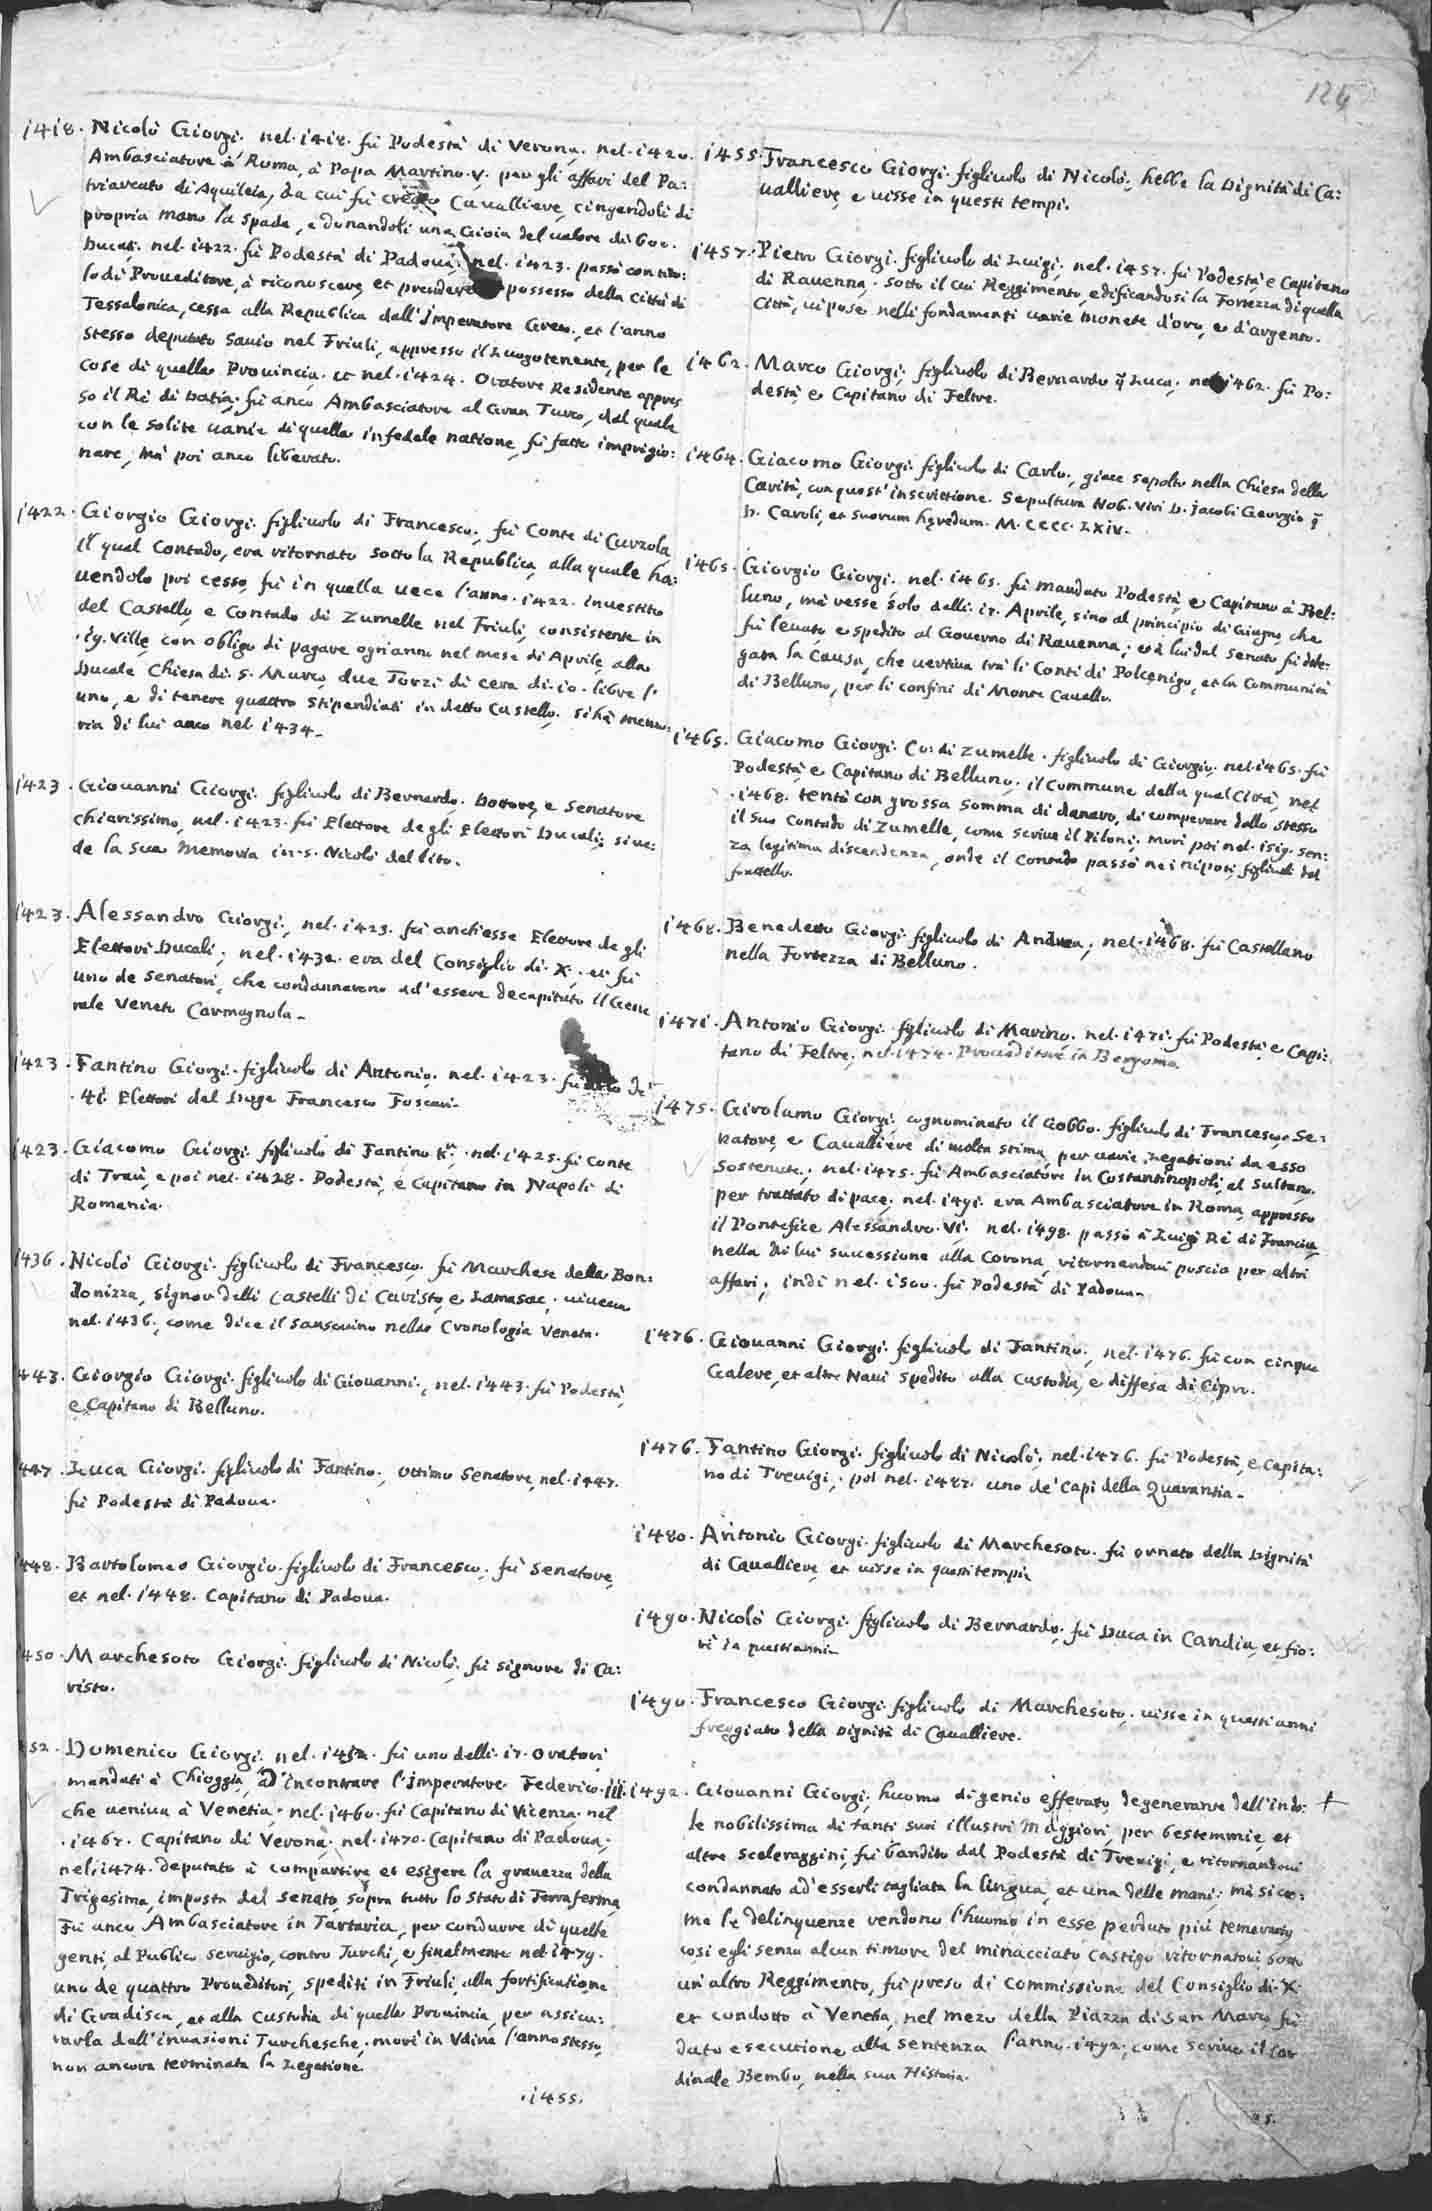 126
1418. Nicolò Giorgi. nel. 1418. fù Podestà di Verona. nel. 1420.
Ambasciatore à Roma, à Papa Martino. V. per gli affari del Pa:
triarcato di Aquileia, da cui fù creato Cavalliere, cingendoli di
propria mano la spada, e donandoli una Gioia del valore di 600.
Ducati. nel. 1422. fù Podestà di Padova. nel. 1423. passò con tito:
lo di Proveditore, à riconoscere, et prendere possesso della Città di
Tessalonica, cessa alla Republica dall'Imperatore Greco, et l'anno
stesso deputato Savio nel Friuli, appresso il Luogotenente, per le
cose di quella Provincia. et nel. 1424. Oratore Residente appres
so il Rè di Datia; fù anco Ambasciatore al Gran Turco, dal quale
con le solite vanie di quella infedele natione, fù fatto imprigio:
nare, mà poi anco liberato.
1422. Giorgio Giorgi. figliuolo di Francesco, fù Conte di Curzola
Il qual Contado, era ritornato sotto la Republica, alla quale ha:
vendolo poi cesso, fù in quella vece l'anno. 1422. investito
del Castello, e Contado di Zumelle nel Friuli, consistente in
.19. Ville, con obligo di pagare ogn'anno nel mese di Aprile, alla
Ducale Chiesa di. S. Marco, due Torzi di cera di. 10. libre l'
uno, e di tenere quattro stipendiati in detto Castello. Si hà memo:
ria di lui anco nel 1434.
1423. Giovanni Giorgi. figliuolo di Bernardo. Dottore, e Senatore
chiarissimo, nel. 1423. fù Elettore degli Elettori Ducali; si ve:
de la sua memoria in. S. Nicolò del lito.
1423. Alessandro Giorgi, nel. 1423. fù anch'esse Elettore de gli
Elettori Ducali; nel. 1432. era del Consiglio di. X. et fù
uno de Senatori, che condannarono ad'essere decapitato il Gene
rale Veneto Carmagnola.
1423. Fantino Giorgi. figliuolo di Antonio, nel. 1423. fù uno de
.41. Elettori del Doge Francesco Foscari.
1423. Giacomo Giorgi. figliuolo di Fantino Kr. nel. 1425. fù Conte
di Traù, e poi nel. 1428. Podestà, e Capitano in Napoli di
Romania.
1436. Nicolò Giorgi. figliuolo di Francesco. fù Marchese della Bon:
donizza, Signor delli Castelli di Caristo, e Lamasac. viveva
nel. 1436. come dice il Sansovino nella Cronologia Veneta.
443. Giorgio Giorgi. figliuolo di Giovanni, nel. 1443. fù Podestà,
e Capitano di Belluno.
447. Luca Giorgi. figliuolo di Fantino, ottimo Senatore, nel. 1447.
fù Podestà di Padova.
448. Bartolomeo Giorgio. figliuolo di Francesco. fù Senatore,
et nel. 1448. Capitano di Padova.
450. Marchesoto Giorgi. figliuolo di Nicolò. fù signore di Ca:
risto.
52. Domenico Giorgi. nel. 1452. fù uno delli. 12. Oratori
mandati à Chioggia, ad'incontrare l'Imperatore Federico. III.
che veniva à Venetia. nel. 1460. fù Capitano di Vicenza. nel
.1467. Capitano di Verona. nel. 1470. Capitano di Padova.
nel. 1474. deputato à compartire et esigere la gravezza della
Trigesima, imposta dal Senato, sopra tutto lo Stato di Terraferma,
Fù anco Ambasciatore in Tartaria, per condurre di quelle
genti, al Publico servigio, contro Turchi, e finalmente nel 1479.
uno de quattro Proveditori, spediti in Friuli, alla fortificatione
di Gradisca, et alla Custodia di quella Provincia, per assicu:
rarla dall'invasioni Turchesche. morì in Vdine l'anno stesso,
non ancora terminata la Legatione.
.1455.
1455. Francesco Giorgi. figliuolo di Nicolò, hebbe la Dignità di Ca:
valliere, e visse in questi tempi.
1457. Pietro Giorgi. figliuolo di Luigi; nel. 1457. fù Podestà, e Capitano
di Ravenna. sotto il cui Reggimento, edificandosi la Fortezza di quella
Città, vi pose nelli fondamenti varie monete d'oro, e d'argento.
1462. Marco Giorgi; figliuolo di Bernardo q Luca; nel 1462. fù Po:
destà, e Capitano di Feltre.
1464. Giacomo Giorgi. figliuolo di Carlo, giace sepolto nella Chiesa della
Carità, con quest'inscrittione. Sepultura Nob. Viri D. Jacobi Georgio q
D. Caroli, et suorum hęredum. M. CCCC. LXIV.
1465. Giorgio Giorgi. nel. 1465. fù mandato Podestà, e Capitano à Bel:
luno, mà resse solo dalli. 12. Aprile, sino al principio di Giugno, che
fù levato, e spedito al Governo di Ravenna; et à lui dal Senato fù dele:
gata la Causa, che vertiva trà li Conti di Polcenigo, et la Communità
di Belluno, per li confini di Monte Cavallo.
1465. Giacomo Giorgi. Co: di Zumelle. figliuolo di Giorgio; nel. 1465. fù
Podestà, e Capitano di Belluno; il Commune della qual Città, nel
.1468. tentò con grossa somma di danaro, di comperare dallo stesso
il suo Contado di Zumelle, come scrive il Piloni; morì poi nel. 1519. sen:
za legitima discendenza, onde il Contado passò ne i nipoti, figliuoli del
fratello.
1468. Benedetto Giorgi. figliuolo di Andrea; nel. 1468. fù Castellano
nella Fortezza di Belluno.
1471. Antonio Giorgi. figliuolo di Marino. nel. 1471. fù Podestà, e Capi:
tano di Feltre; nel. 1474. Proveditore in Bergomo.
1475. Girolamo Giorgi. cognominato il Gobbo. figliuolo di Francesco. Se:
natore, e Cavalliere di molta stima, per varie negationi da esso
sostenute; nel. 1475. fù Ambasciatore in Costantinopoli, al Sultano.
per trattato di pace. nel. 1491. era Ambasciatore in Roma, appresso
il Pontefice Alessandro. VI. nel. 1498. passò à Luigi Rè di Francia,
nella di lui successione alla Corona, ritornandovi poscia per altri
affari; indi nel. 1500. fù Podestà di Padova.
1476. Giovanni Giorgi. figliuolo di Fantino; nel. 1476. fù con cinque
Galere, et altre Navi spedito alla Custodia, e diffesa di Cipro.
1476. Fantino Giorgi. figliuolo di Nicolò; nel. 1476. fù Podestà, e Capita:
no di Trevigi; poi nel. 1487. uno de' Capi della Quarantia.
1480. Antonio Giorgi. figliuolo di Marchesoto. fù ornato della Dignità
di Cavalliere, et visse in questi tempi.
1490. Nicolò Giorgi. figliuolo di Bernardo; fù Duca in Candia, et fio:
rì in questi anni.
1490. Francesco Giorgi. figliuolo di Marchesoto; visse in questi anni
freggiato della Dignità di Cavalliere.
1492. Giovanni Giorgi; huomo di genio efferato, degenerante dall'indo:
le nobilissima di tanti suoi illustri Maggiori, per bestemmie, et
altre sceleraggini, fù bandito dal Podestà di Trevigi, e ritornandovi
condannato ad'esserli tagliata la lingua, et una delle mani; mà si co:
me le delinquenze rendono l'huomo in esse perduto più temerario
così egli senza alcun timore del minacciato castigo ritornatovi sotto
un'altro Reggimento, fù preso di commissione del Consiglio di. X.
et condotto à Venetia, nel mezo della Piazza di San Marco fù
dato esecutione alla sentenza l'anno. 1492; come scrive il Car
dinale Bembo, nella sua Historia.